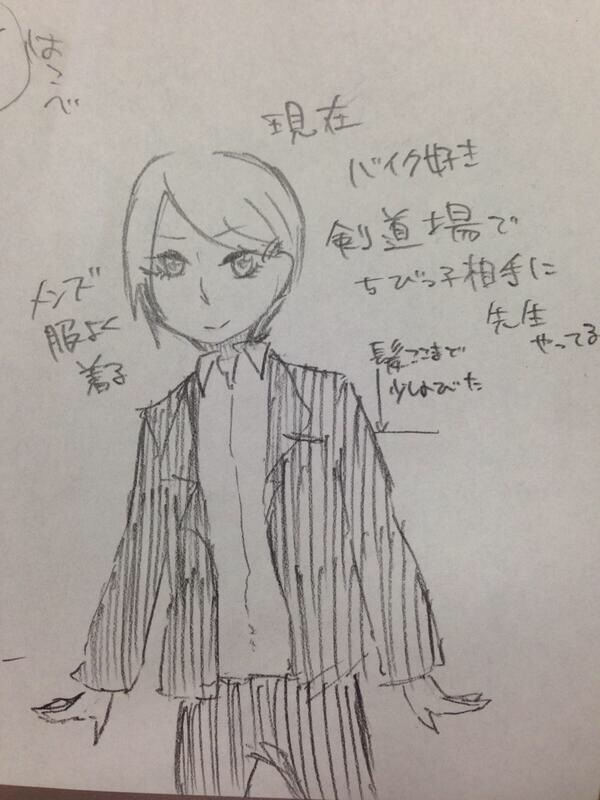 現在
バイク好き
剣道場で
ちびっ子相手に
先生
やってる
髪ここまで
少しのびた
メンズ
服よく
着る